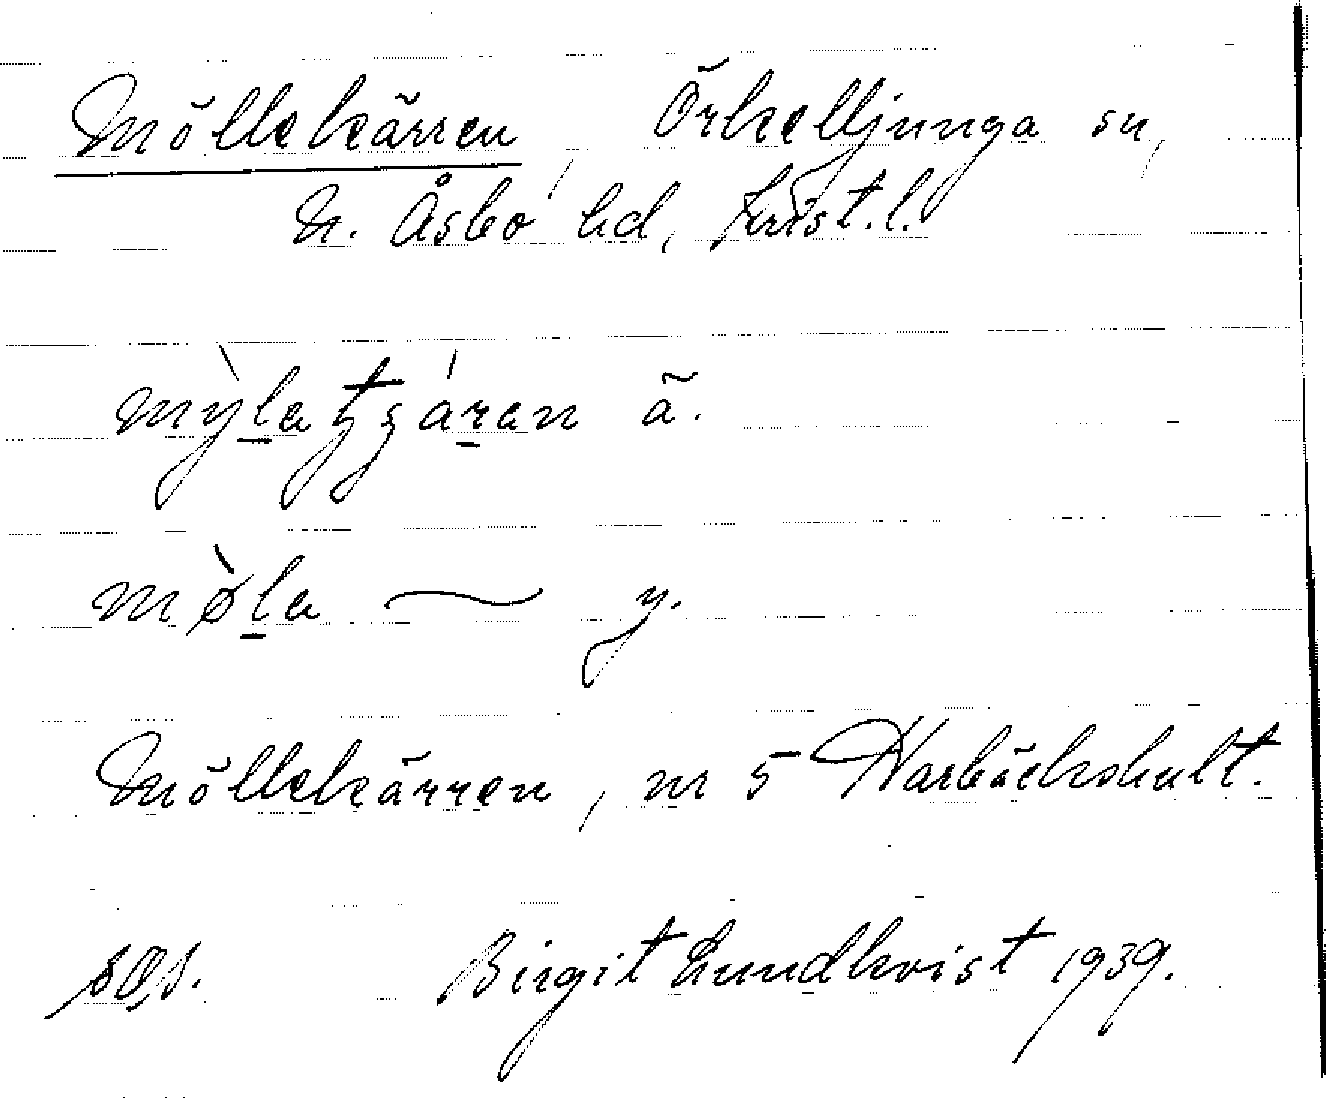 Möllekärren, Örkelljunga sn,
N. Åsbo hd, Krist. l.
mỳla tʒáran ä.
mø̀la ⁓ y.
Möllekärren, nr 5 Harbäckshult.
Birgit Lundkvist 1939.